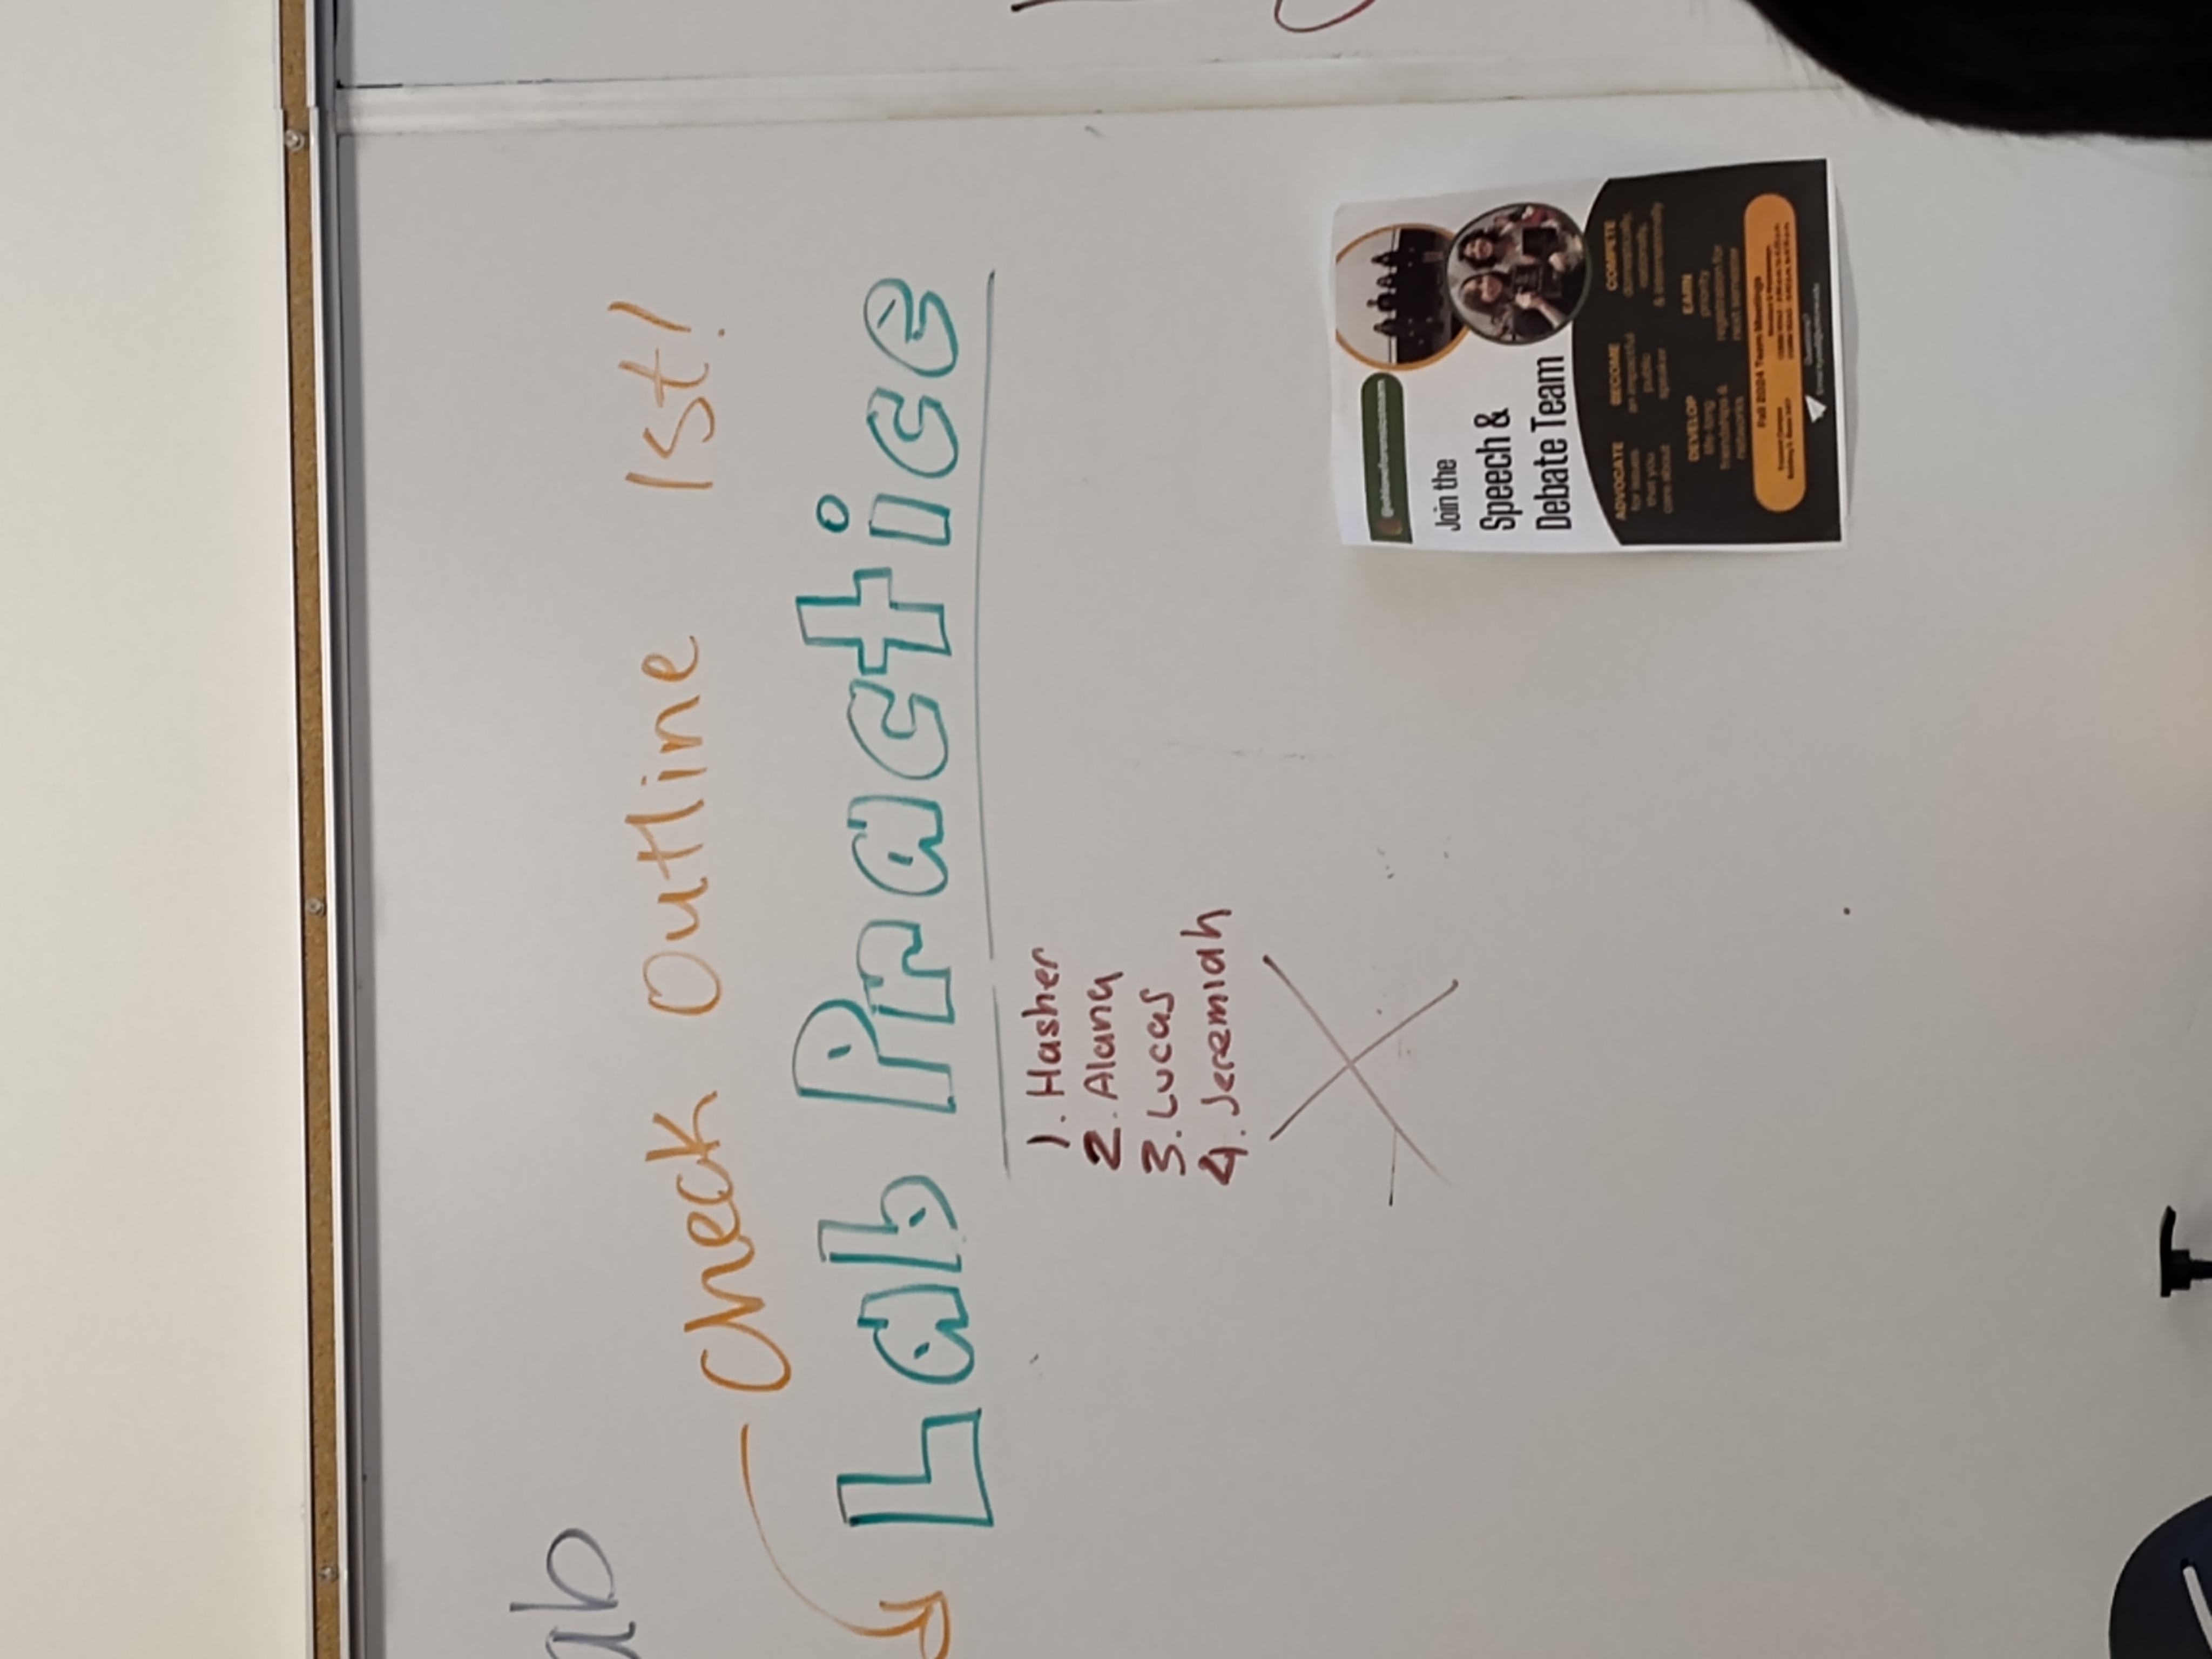 ab
Check Outline 1st!
Lab Practice
1. Hasher
2. Alana
3. Lucas
4. Jeremiah
@ohloneforensicsteam
Join the
Speech &
Debate Team
ADVOCATE
for issues
that you
care about
BECOME
an impactful
public
speaker
COMPETE
domestically,
nationally,
& internationally
DEVELOP
life-long
friendships &
networks
EARN
priority
registration for
next semester
Fall 2024 Team Meetings
Fremont Campus
Questions?